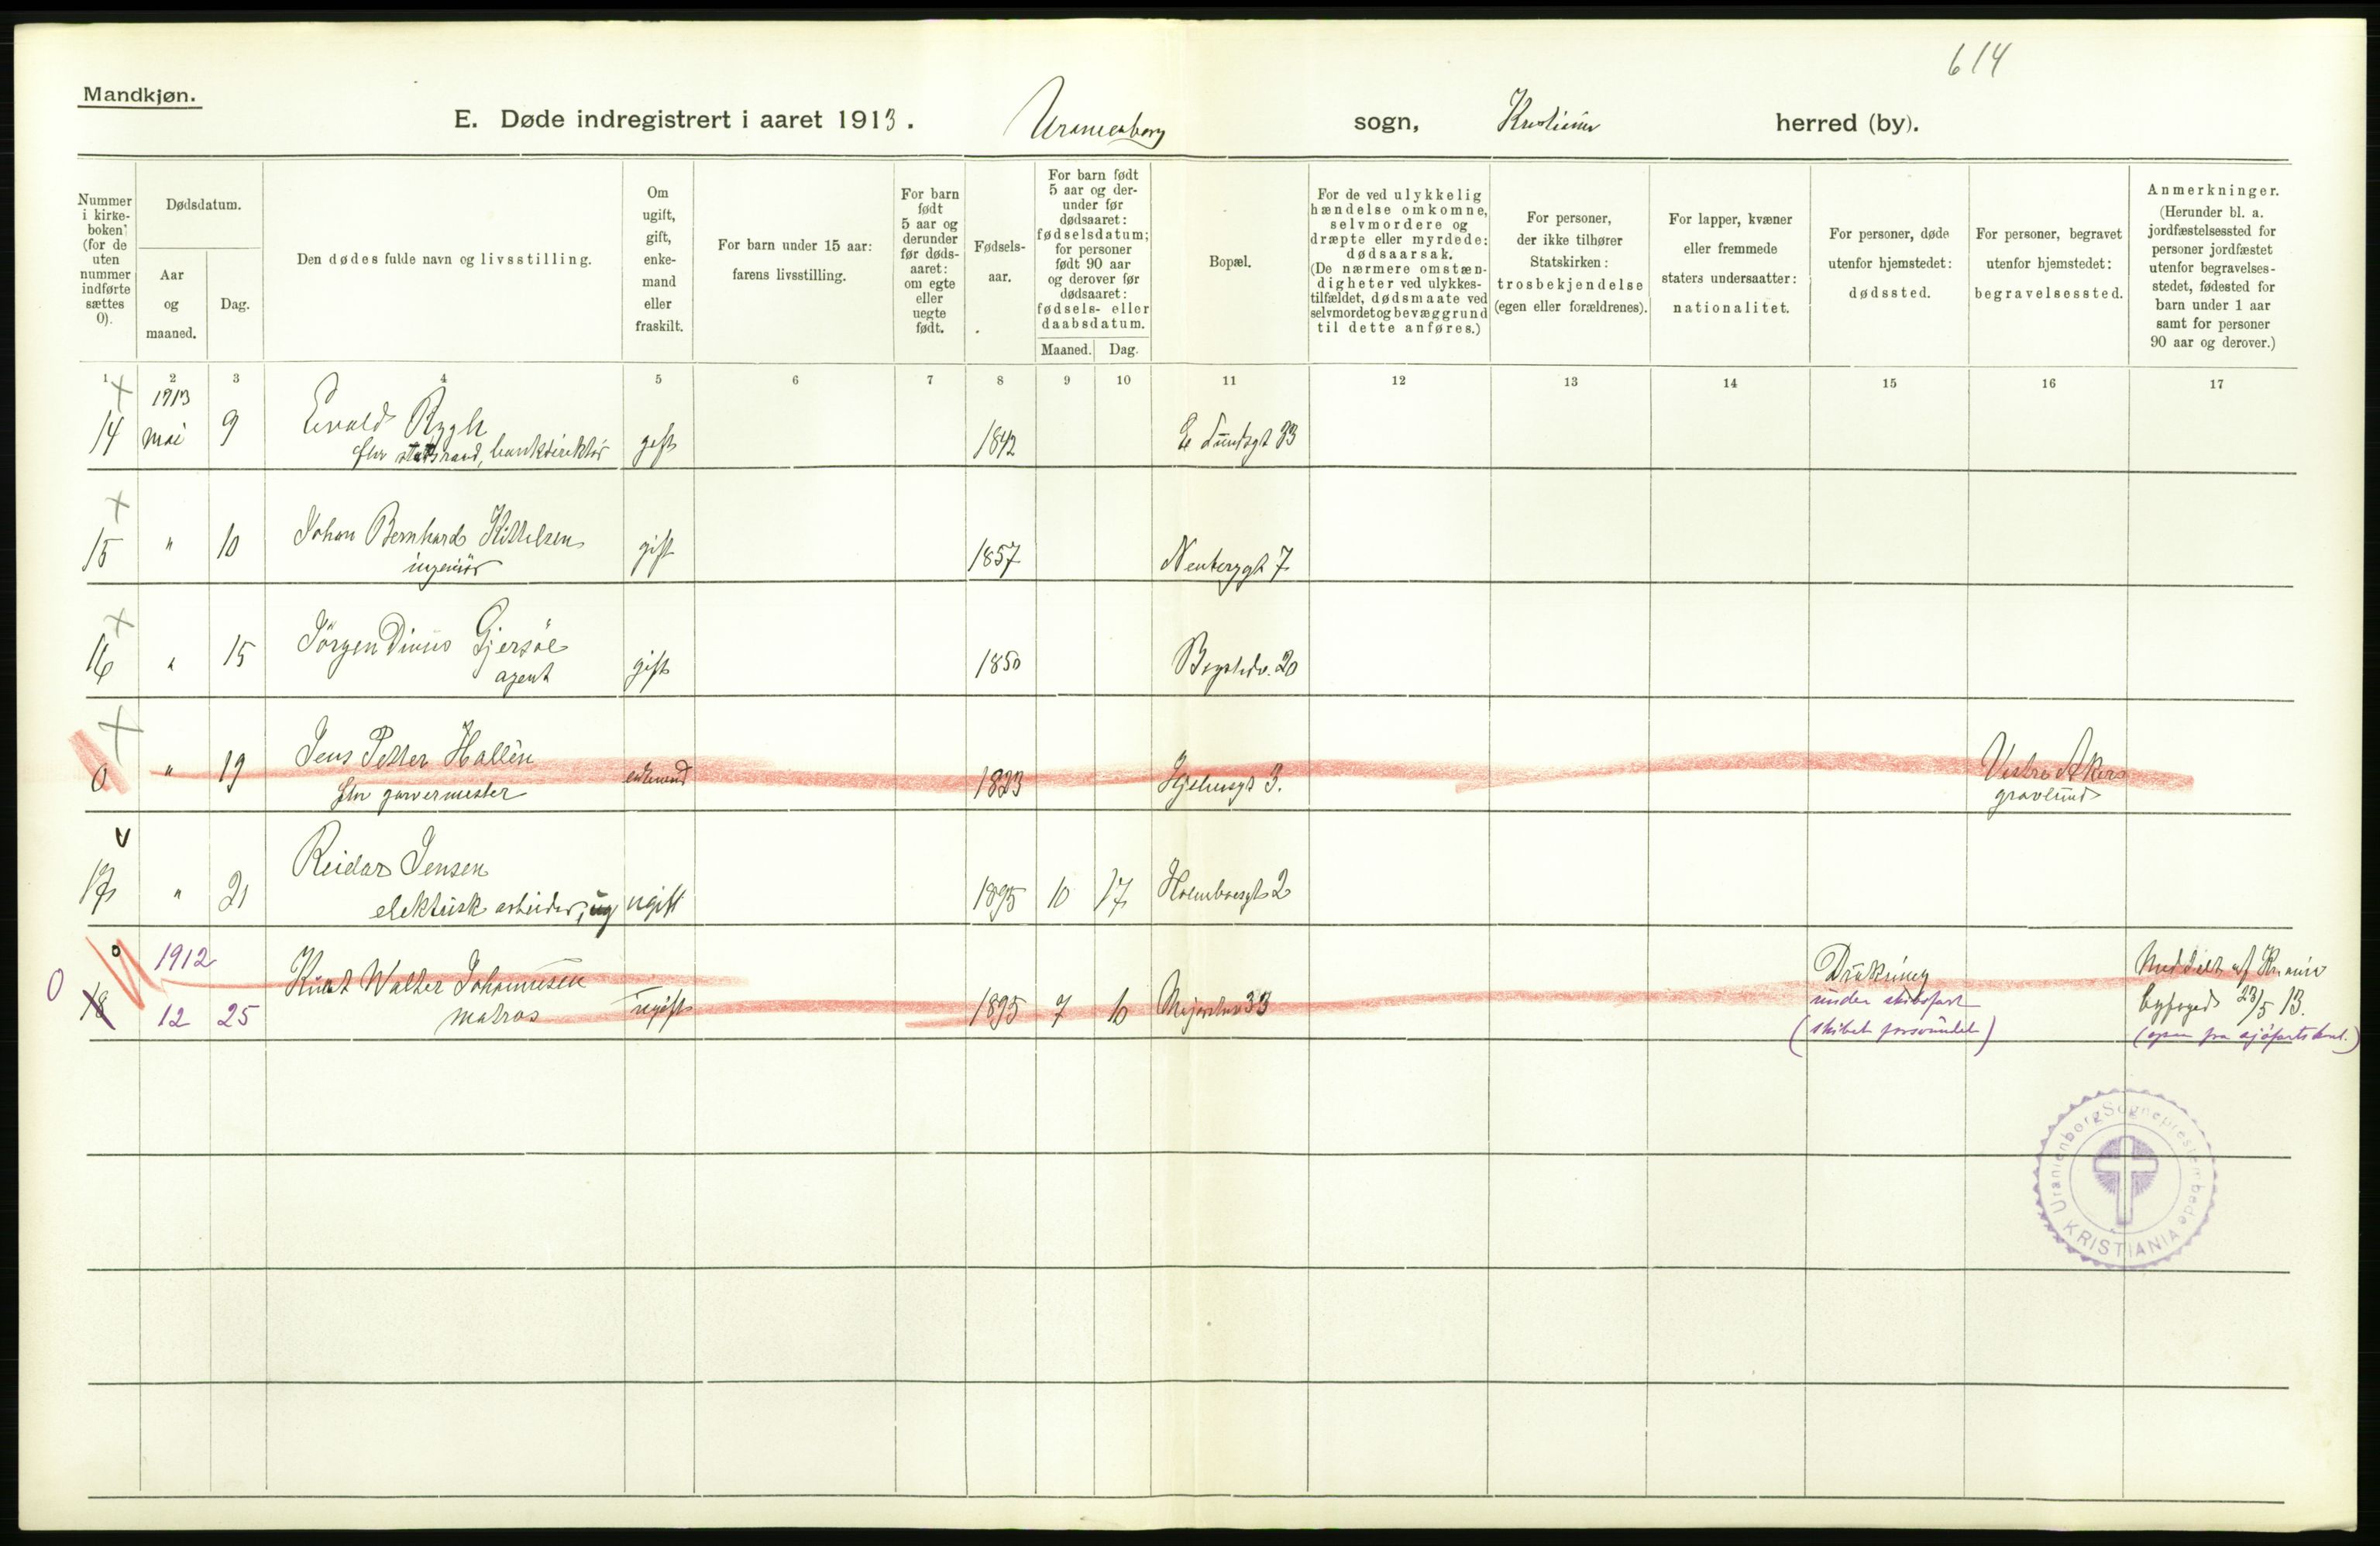 614
Mandkjøn.
E. Døde indregistrert i aaret 1913. Uranienborg sogn, Kristiania herred (by).
Nummer i kirke-boken (for de uten nummer indførte sættes 0).
Dødsdatum.
Aar og maaned.
Dag.
Den dødes fulde navn og livsstilling.
Om ugift, gift, enke-mand eller fraskilt.
For barn under 15 aar: farens livsstilling.
For barn født 5 aar og derunder før døds-aaret: om egte eller uegte født.
Fødsels-aar.
For barn født 5 aar og der-under før dødsaaret: fødselsdatum; for personer født 90 aar og derover før dødsaaret: fødsels- eller daabsdatum.
Maaned. Dag.
Bopæl.
For de ved ulykkelig hændelse omkomne, selvmordere og dræpte eller myrdede: dødsaarsak. (De nærmere omstæn-digheter ved ulykkes-tilfældet, dødsmaate ved selvmordet og bevæggrund til dette anføres.)
For personer, der ikke tilhører Statskirken: trosbekjendelse (egen eller forældrenes).
For lapper, kvæner eller fremmede staters undersaatter: nationalitet.
For personer, døde utenfor hjemstedet: dødssted.
For personer, begravet utenfor hjemstedet: begravelsessted.
Anmerkninger. (Herunder bl. a. jordfæstelsessted for personer jordfæstet utenfor begravelses-stedet, fødested for barn under 1 aar samt for personer 90 aar og derover.)
1 2 3 4 5 6 7 8 9 10 11 12 13 14 15 16 17
1913
14 mai 9 Evald Rygh gift 1842 E Sundsgt 33
fhv statsraad, bankdirektør
15 " 10 Johan Bernhard Kittelsen gift 1857 Neuberggt 7
ingeniør
16 " 15 Jörgen Dinus Gjersöe gift 1850 Bogstadv. 20
agent
0 " 19 Jens Petter Hallén enkemand 1823 Hjelmsgt 3. Vestre Akers
fhv garvermester gravlund
17 " 21 Reidar Jensen
elektrisk arbeider, ugift 1895 10 17 Holmboesgt 2
0 1912
18 12 25 Knut Walter Johannesen ugift 1895 7 10 Majorstuv 33
matros
Drukning
under skibsfart
(skibet forsvundet)
Meddelt af Kr.ania
byfoged 23/5 13.
(opn fra sjöfartskont.)
Uranienborg Sogneprestembede
KRISTIANIA